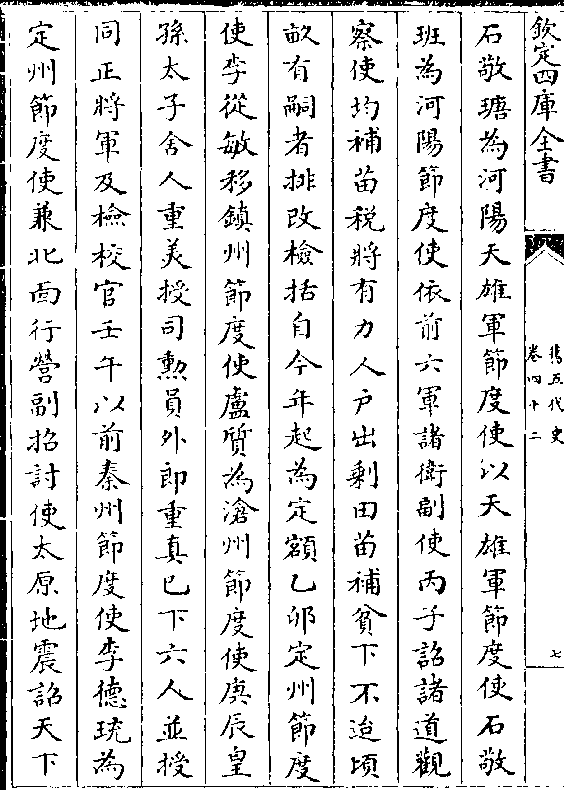 欽定四庫全書
舊五代史
卷四十二
七
石敬瑭為河陽天雄軍節度使以天雄軍節度使石敬
班為河陽節度使依前六軍諸衛副使丙子詔諸道觀
察使均補苗税將有力人户出剩田苗補貧下不迨頃
畝有嗣者排改檢括自今年起為定額乙卯定州節度
使李從敏移鎮州節度使盧質為滄州節度使庚辰皇
孫太子舍人重美授司勲員外郎重真已下六人並授
同正將軍及檢校官壬午以前秦州節度使李德珫為
定州節度使兼北面行營副招討使太原地震詔天下